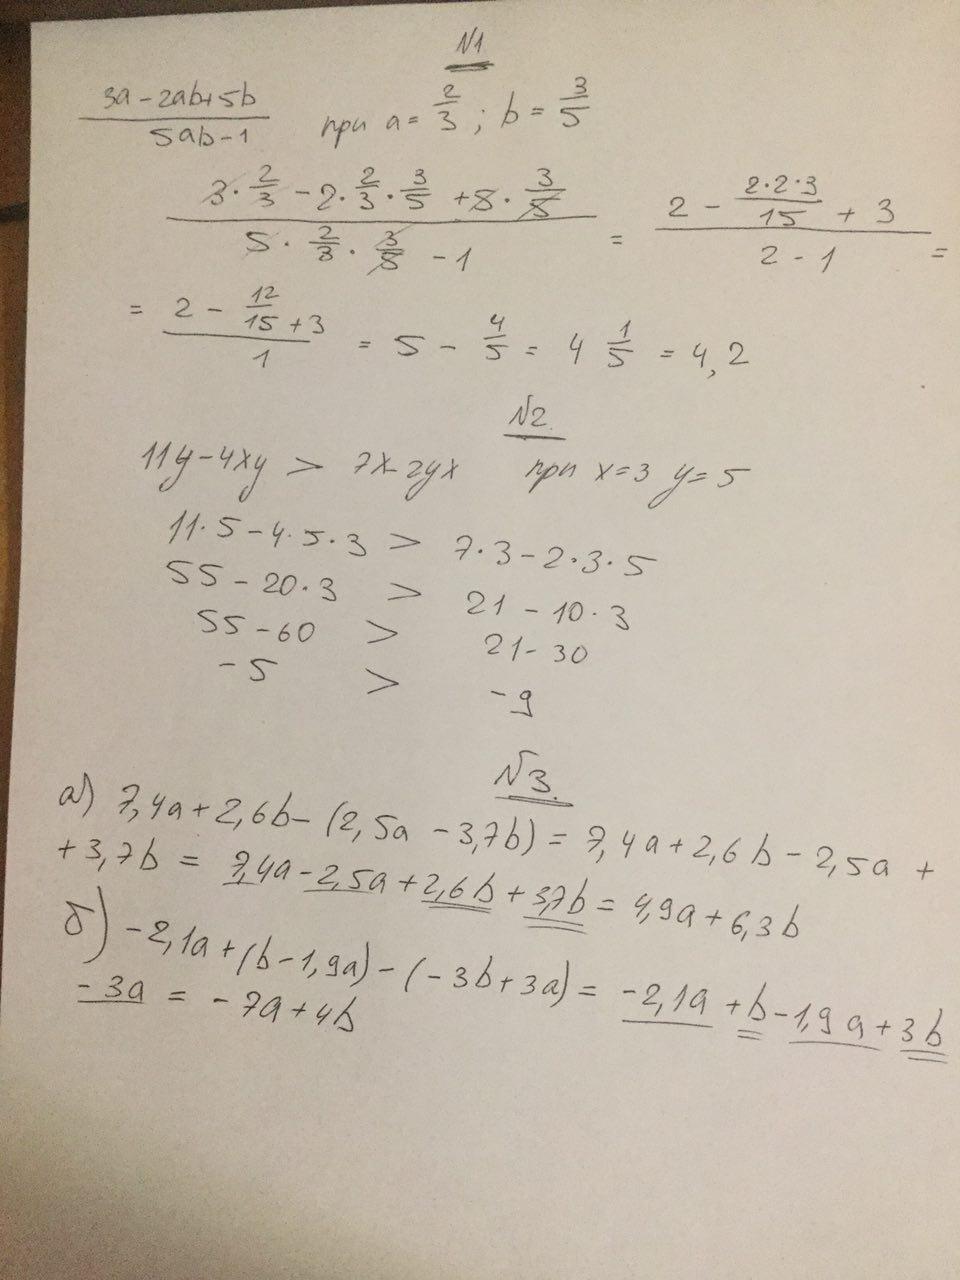 №1
(3a - 2ab + 5b)/(5ab - 1) при a = 2/3 ; b = 3/5
(3 · 2/3 - 2 · 2/3 · 3/5 + 5 · 3/5)/(5 · 2/3 · 3/5 - 1) = (2 - (2·2·3)/15 + 3)/(2 - 1) =
= (2 - 12/15 + 3)/1 = 5 - 4/5 = 4 1/5 = 4,2
№2.
11y - 4xy > 7x - 2yx при x = 3 y = 5
11·5 - 4·5·3 > 7·3 - 2·3·5
55 - 20·3 > 21 - 10·3
55 - 60 > 21 - 30
-5 > -9
№3.
а) 7,4a + 2,6b - (2,5a - 3,7b) = 7,4a + 2,6b - 2,5a +
+ 3,7b = 7,4a - 2,5a + 2,6b + 3,7b = 4,9a + 6,3b
б) -2,1a + (b - 1,9a) - (-3b + 3a) = -2,1a + b - 1,9a + 3b
- 3a = -7a + 4b